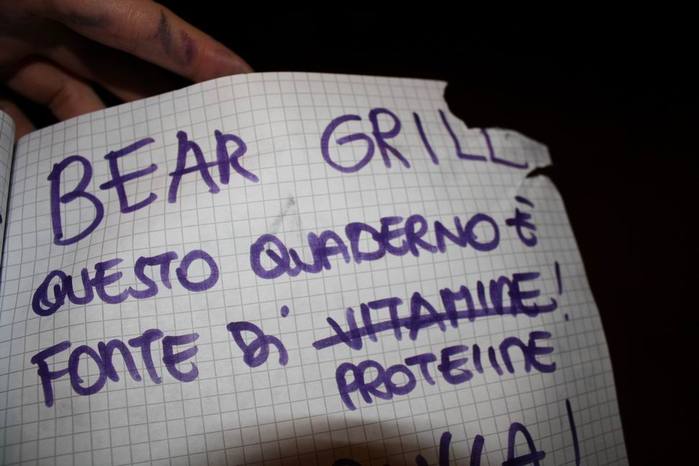 BEAR GRILL
QUESTO QUADERNO È
FONTE DI VITAMINE!
PROTEIINE